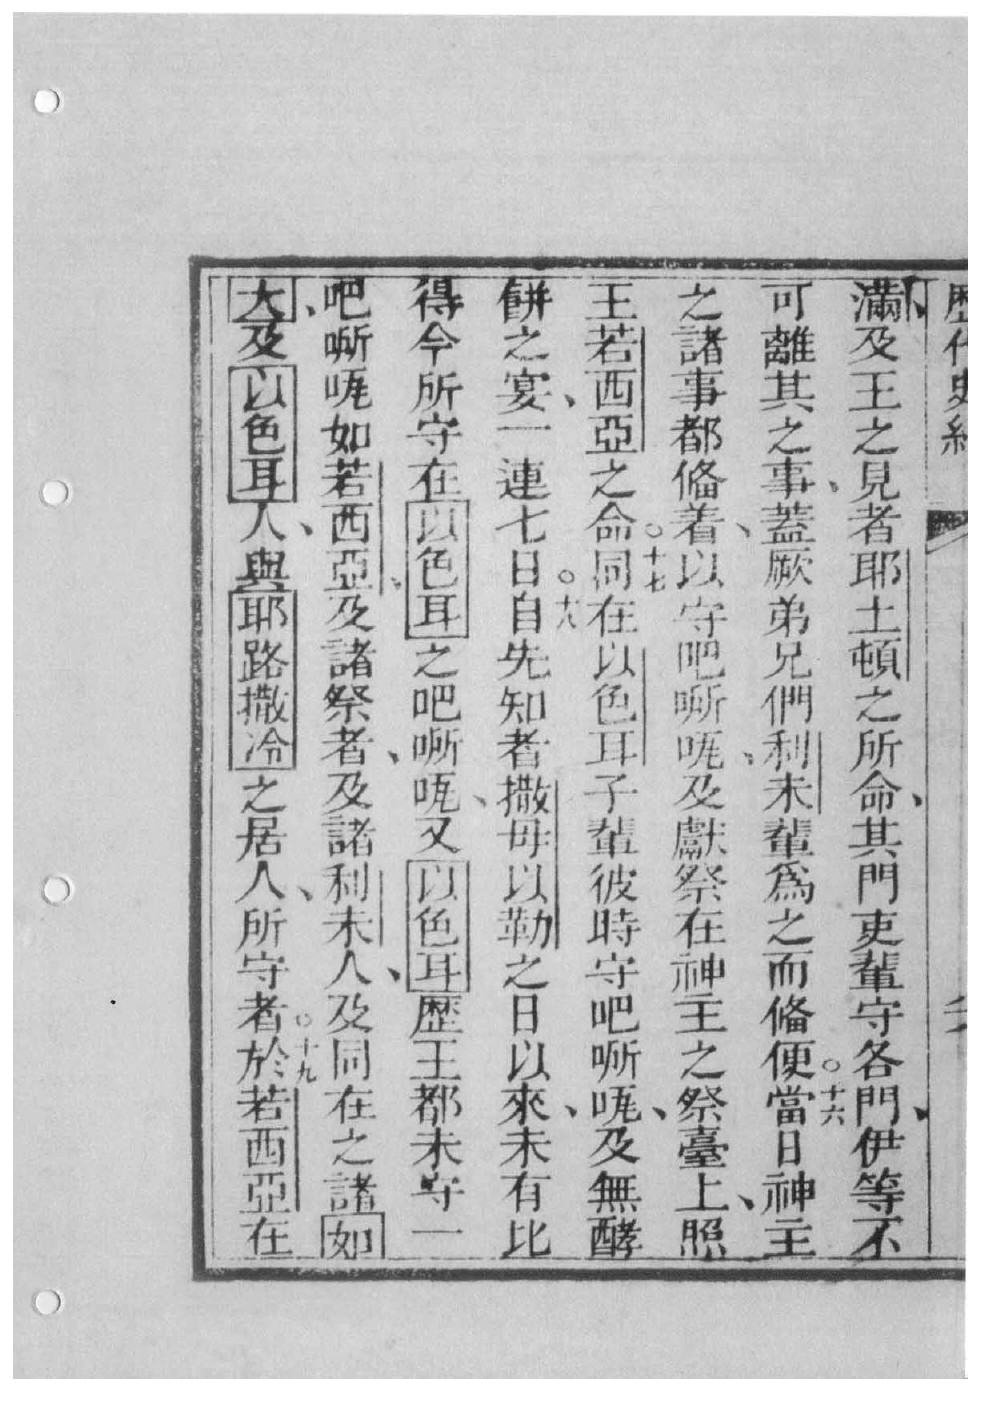 歷代史紀
滿及王之見者耶土頓之所命、其門吏輩守各門、伊等不
可離其之事、蓋厥弟兄們利未輩爲之而俻便○十六當日神主
之諸事都俻着、以守吧嘶唲、及獻祭在神主之祭臺上、照
王若西亞之命○十七同在以色耳子輩彼時守吧嘶唲、及無酵
餅之宴、一連七日○十八自先知者撒母以勒之日以來、未有比
得今所守在以色耳之吧嘶唲、又以色耳歷王都未守一
吧嘶唲如若西亞、及諸祭者、及諸利未人、及同在之諸如
大、及以色耳人、與耶路撒冷之居人、所守者○十九於若西亞在